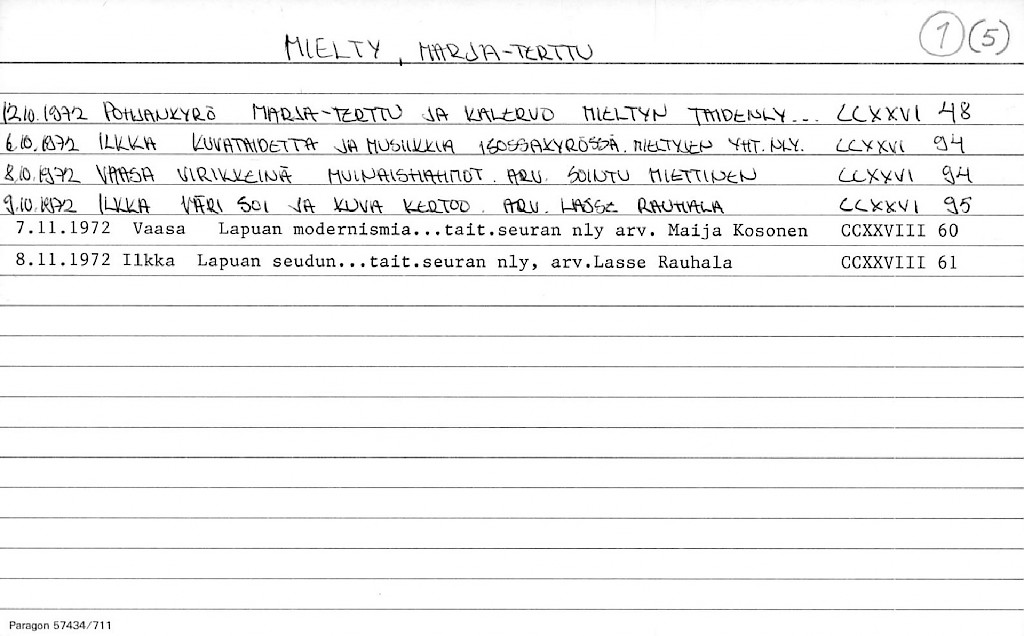 MIELTY, MARJA-TERTTU
1 (5)
12.10.1972 POHJANKYRÖ MARJA-TERTTU JA KALERVO MIELTYN TAIDENLY... CCXXVI 48
6.10.1972 ILKKA KUVATAIDETTA JA MUSIIKKIA ISOSSAKYRÖSSÄ. MIELTYJEN YHT. NLY. CCXXVI 94
8.10.1972 VAASA VIRIKKEINÄ MUINAISHAHMOT. ARV. SOINTU MIETTINEN CCXXVI 94
9.10.1972 ILKKA VÄRI SOI JA KUVA KERTOO. ARV. LASSE RAUHALA CCXXVI 95
7.11.1972 Vaasa Lapuan modernismia...tait.seuran nly arv. Maija Kosonen CCXXVIII 60
8.11.1972 Ilkka Lapuan seudun...tait.seuran nly, arv.Lasse Rauhala CCXXVIII 61
Paragon 57434/711